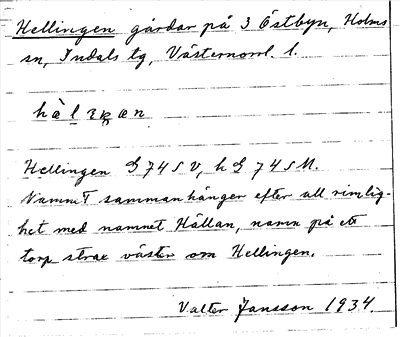 Hellingen gårdar på 3 Östbyn, Holms
sn, Indals tg, Västernorrl. l.
Hellingen G 74 S V, h G 74 S M.
Namnet sammanhänger efter all rimlig-
het med namnet Hällan, namn på ett
torp strax väster om Hellingen.
Valter Jansson 1934.